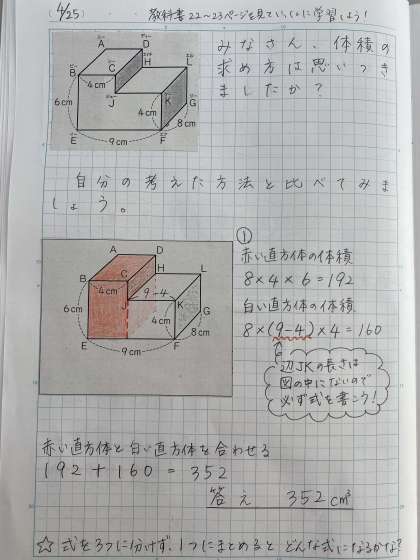 (4/25) 教科書22～23ページを見ていっしょに学習しよう!
みなさん、体積の
求め方は思いつき
ましたか?
A
D
B
C
H
L
4cm
J
K
G
6cm
4cm
8cm
E
F
9cm
自分の考えた方法と比べてみま
しょう。
A
D
B
C
H
L
4cm
J
9-4
K
G
6cm
4cm
8cm
E
F
9cm
①
赤い直方体の体積
8×4×6=192
白い直方体の体積
8×(9-4)×4=160
辺JKの長さは
図の中にないので
必ず式を書こう!
赤い直方体と白い直方体を合わせる
192+160=352
答え 352cm³
☆式を3つに分けず、1つにまとめるとどんな式になるかな?